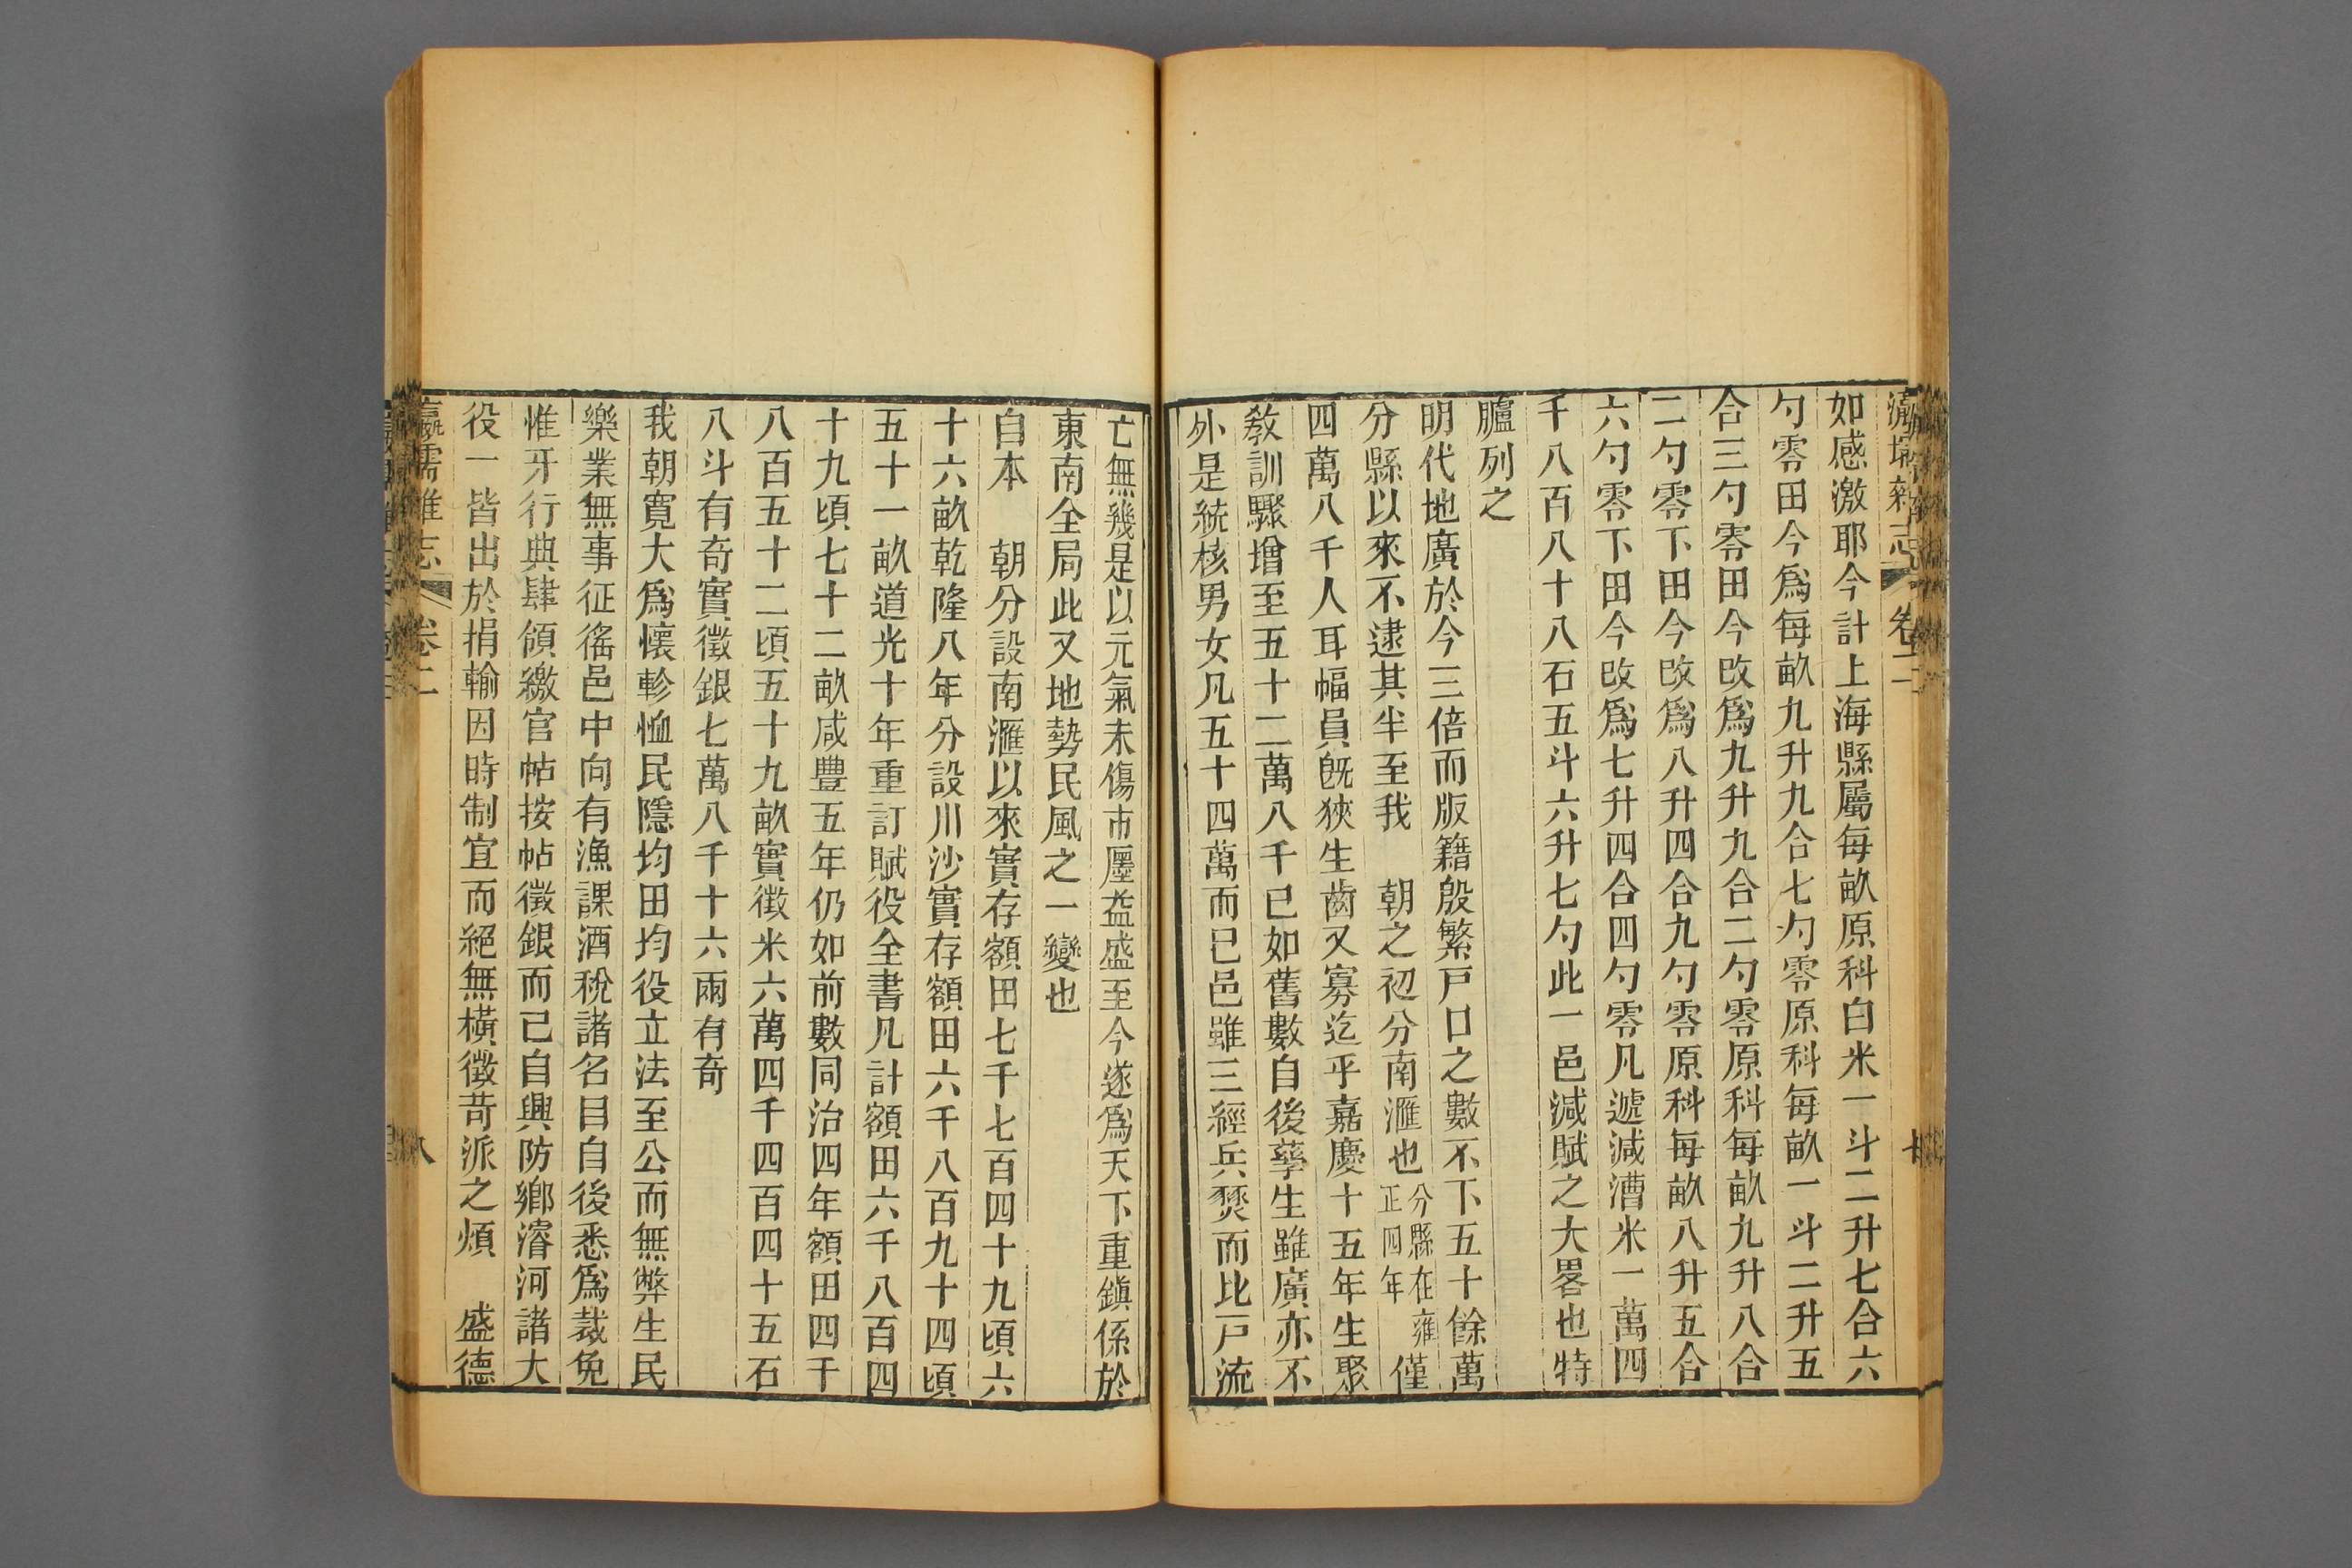 瀛壖雜志 卷二
如感激耶今計上海縣屬每畝原科白米一斗二升七合六
勺零田今爲每畝九升九合七勺零原科每畝一斗二升五
合三勺零田今改爲九升九合二勺零原科每畝九升八合
二勺零下田今改爲八升四合九勺零原科每畝八升五合
六勺零下田今改爲七升四合四勺零凡遞減漕米一萬四
千八百八十八石五斗六升七勺此一邑減賦之大畧也特
臚列之
明代地廣於今三倍而版籍殷繁戸口之數不下五十餘萬
分縣以來不逮其半至我 朝之初分南滙也分縣在雍正四年僅
四萬八千人耳幅員旣狹生齒又寡迄乎嘉慶十五年生聚
敎訓驟增至五十二萬八千已如舊數自後孳生雖廣亦不
外是統核男女凡五十四萬而已邑雖三經兵燹而比戸流
亡無幾是以元氣未傷市廛益盛至今遂爲天下重鎭係於
東南全局此又地勢民風之一變也
自本 朝分設南滙以來實存額田七千七百四十九頃六
十六畝乾隆八年分設川沙實存額田六千八百九十四頃
五十一畝道光十年重訂賦役全書凡計額田六千八百四
十九頃七十二畝咸豐五年仍如前數同治四年額田四千
八百五十二頃五十九畝實徵米六萬四千四百四十五石
八斗有奇實徵銀七萬八千十六兩有奇
我朝寛大爲懷軫恤民隱均田均役立法至公而無弊生民
樂業無事征徭邑中向有漁課酒稅諸名目自後悉爲裁免
惟牙行典肆領繳官帖按帖徵銀而已自興防鄉濬河諸大
役一皆出於捐輸因時制宜而絕無橫徵苛派之煩 盛德
瀛壖雜志 卷二 八